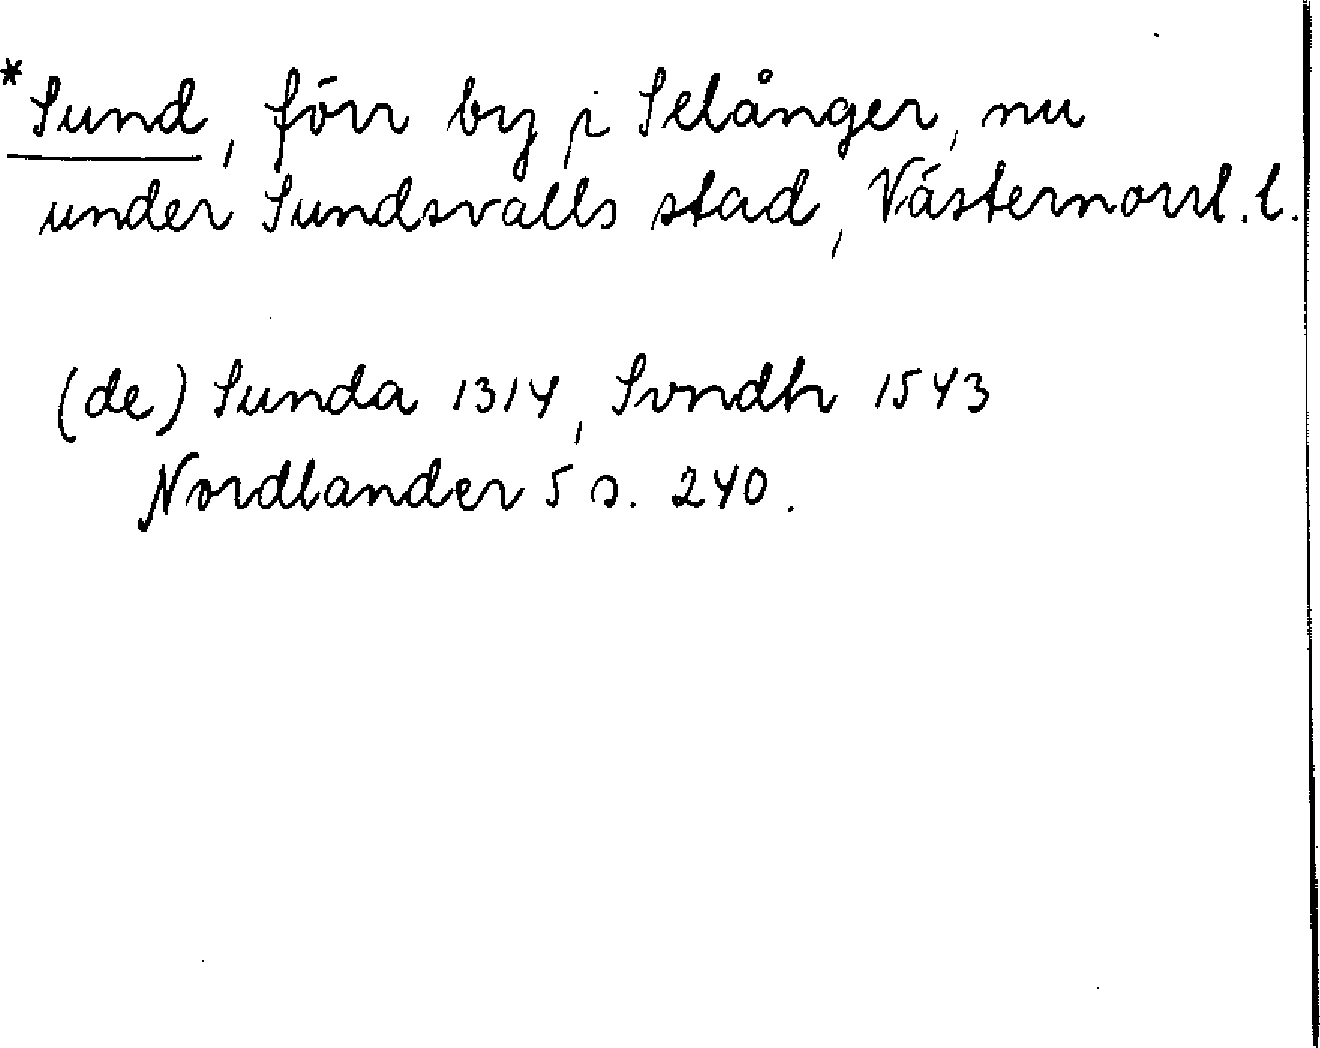 *Sund, förr by i Selånger, nu
under Sundsvalls stad, Västernorrl. l.
(de) Sunda 1314, Svndh 1543
Nordlander 5 s. 240.